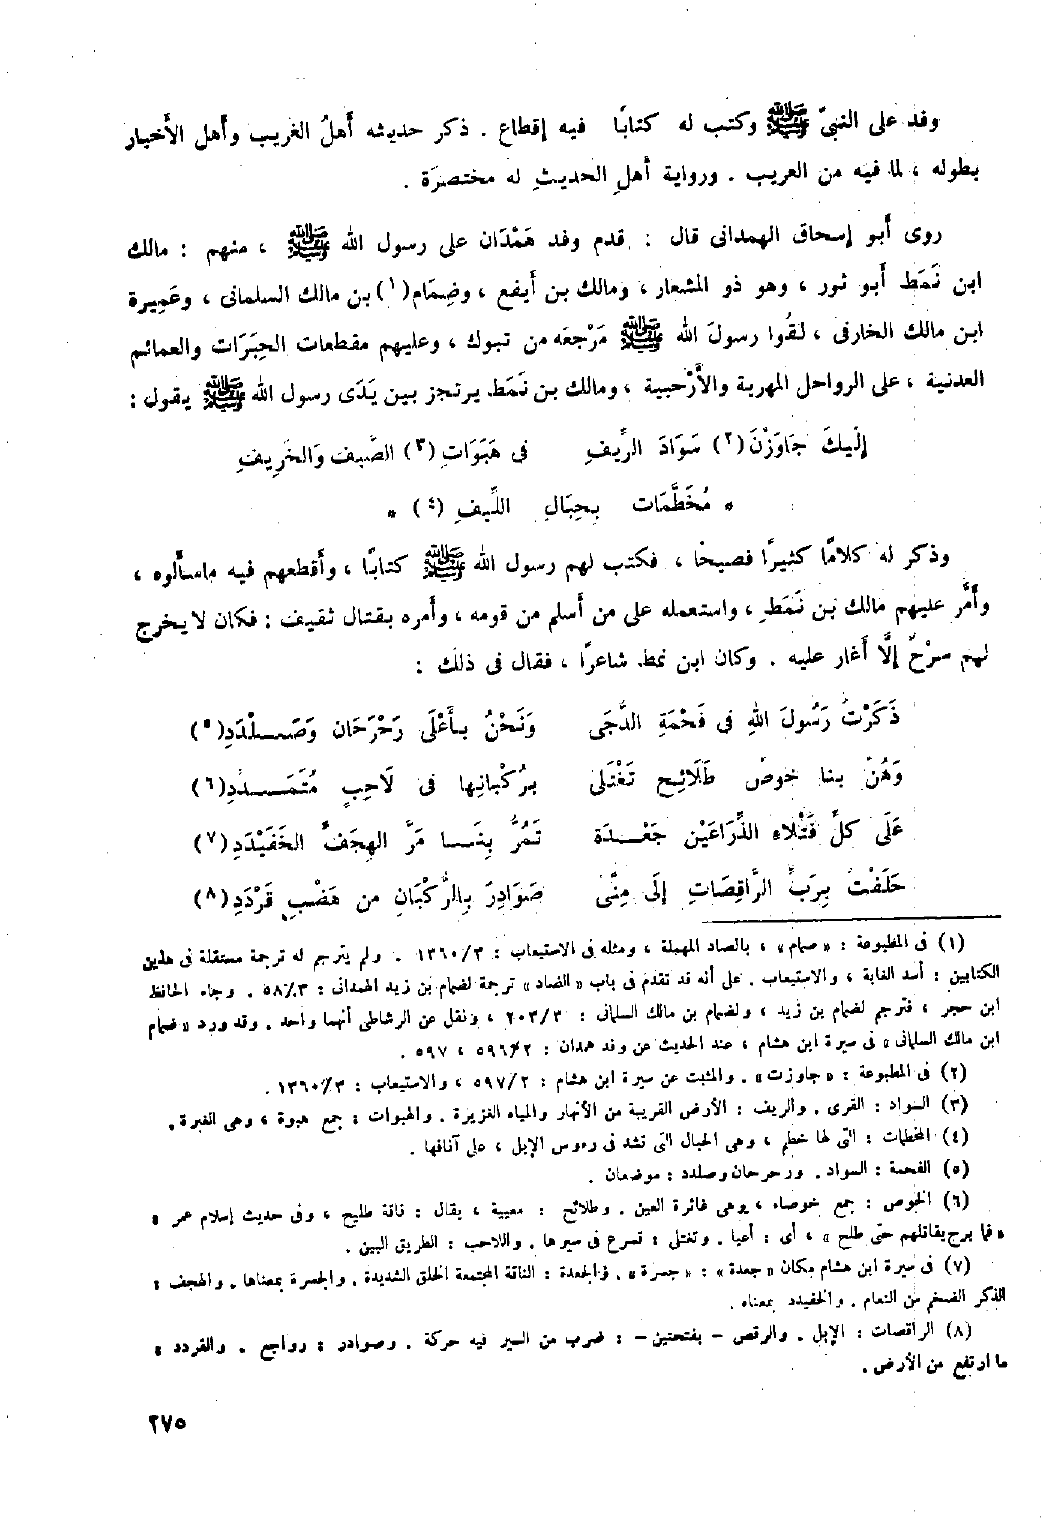 وفد على النبىّ ﷺ وكتب له كتابًا فيه إقطاع . ذكر حديثه أهلُ الغريب وأهل الأخبار
بطوله ، لما فيه من الغريب . ورواية أهلِ الحديثِ له مختصرَة .
روى أبو إسحاق الهمدانى قال : قدم وفد هَمْدَان على رسول الله ﷺ ، منهم : مالك
ابن نَمَط أبو ثور ، وهو ذو المشعار ، ومالك بن أيفع ، وضِمَام(١) بن مالك السلمانى ، وعَمِيرة
ابن مالك الخارفى ، لقُوا رسولَ الله ﷺ مَرْجعَه من تبوك ، وعليهم مقطعات الحِبَرَات والعمائم
العدنية ، على الرواحل المهرية والأَرْحبية ، ومالك بن نَمَط يرتجز بين يَدَى رسول الله ﷺ يقول :
إلَيكَ جَاوَزْنَ(٢) سَوَادَ الرِّيفِ فى هَبَوَاتِ(٣) الصَّيف وَالخَرِيفِ
* مُخَطَّمَات بِحِبَالِ اللِّيفِ (٤) *
وذكر له كلامًا كثيرًا فصيحًا ، فكتب لهم رسول الله ﷺ كتابًا ، وأقطعهم فيه ماسألوه ،
وأمَّر عليهم مالك بن نَمَطِ ، واستعمله على من أسلم من قومه ، وأمره بقتال ثقيف : فكان لا يخرج
لهم سرْحٌ إلَّا أغار عليه . وكان ابن نمط شاعرًا ، فقال فى ذلك :
ذَكَرْتُ رَسُولَ اللهِ فى فَحْمَةِ الدُّجَى وَنَحْنُ بأَعْلَى رَحْرَحَان وَصَلْدَدِ(٥)
وَهُنّ بنا خوصٌ طَلَائِح تَغْتَلى برُكْبانِها فى لَاحِبٍ مُتَمَدِّدِ(٦)
عَلَى كلِّ فَتْلاءِ الذِّرَاعَيْن جَعْدَة تَمُرُّ بِنَا مَرَّ الهِجَفِّ الخَفَيْدَدِ(٧)
حَلَفْتُ بِرَبِّ الرَّاقِصَاتِ إلَى مِنًى صَوَادِرَ بِالرُّكْبَانِ من هَضْبِ قَرْدَدِ(٨)
(١) فى المطبوعة : « صمام » ، بالصاد المهملة ، ومثله فى الاستيعاب : ١٣٦٠/٣ . ولم يترجم له ترجمة مستقلة فى هذين
الكتابين : أسد الغابة ، والاستيعاب . على أنه قد تقدم فى باب « الضاد » ترجمة لضمام بن زيد الهمدانى : ٥٨/٣ . وجاء الحافظ
ابن حجر ، فترجم لضمام بن زيد ، ولضمام بن مالك السلمانى : ٢٠٣/٣ ، ونقل عن الرشاطى أنهما واحد . وقد ورد « ضمام
ابن مالك السلمانى » فى سيرة ابن هشام ، عند الحديث عن وفد همدان : ٥٩٦/٢ ، ٥٩٧ .
(٢) فى المطبوعة : « جاوزت » . والمثبت عن سيرة ابن هشام : ٥٩٧/٢ ، والاستيعاب : ١٣٦٠/٣ .
(٣) السواد : القرى . والريف : الأرض القريبة من الأنهار والمياه الغزيرة . والهبوات : جمع هبوة ، وهى الغبرة .
(٤) المخطمات : التى لها خطم ، وهى الحبال التى تشد فى رءوس الإبل ، على آنافها .
(٥) الفحمة : السواد . ورحرحان وصلدد : موضعان .
(٦) الخوص : جمع خوصاء ، وهى غائرة العين . وطلائح : معيية ، يقال : ناقة طليح ، وفى حديث إسلام عمر :
« فما برح يقاتلهم حتى طلح » ، أى : أعيا . وتغتلى : تسرع فى سيرها . واللاحب : الطريق البين .
(٧) فى سيرة ابن هشام مكان « جعدة » : « جسرة » . والجعدة : الناقة المجتمعة الخلق الشديدة . والجسرة بمعناها . والهجف :
الذكر الضخم من النعام . والخفيدد بمعناه .
(٨) الراقصات : الإبل . والرقص - بفتحتين - : ضرب من السير فيه حركة . وصوادر : رواجع . والقردد :
ما ارتفع من الأرض .
٢٧٥